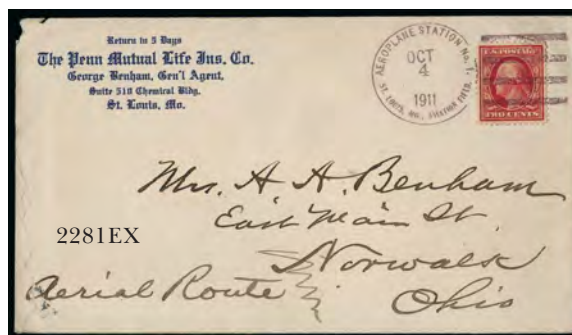 Return in 5 Days
The Penn Mutual Life Ins. Co.
George Benham, Gen'l Agent,
Suite 510 Chemical Bldg.
St. Louis, Mo.
AEROPLANE STATION No. 1.
OCT
4
1911
ST. LOUIS, MO., AVIATION FIELD.
U.S. POSTAGE
TWO CENTS
Mrs. A. A. Benham
East Main St.
Norwalk
Ohio
2281EX
Aerial Route